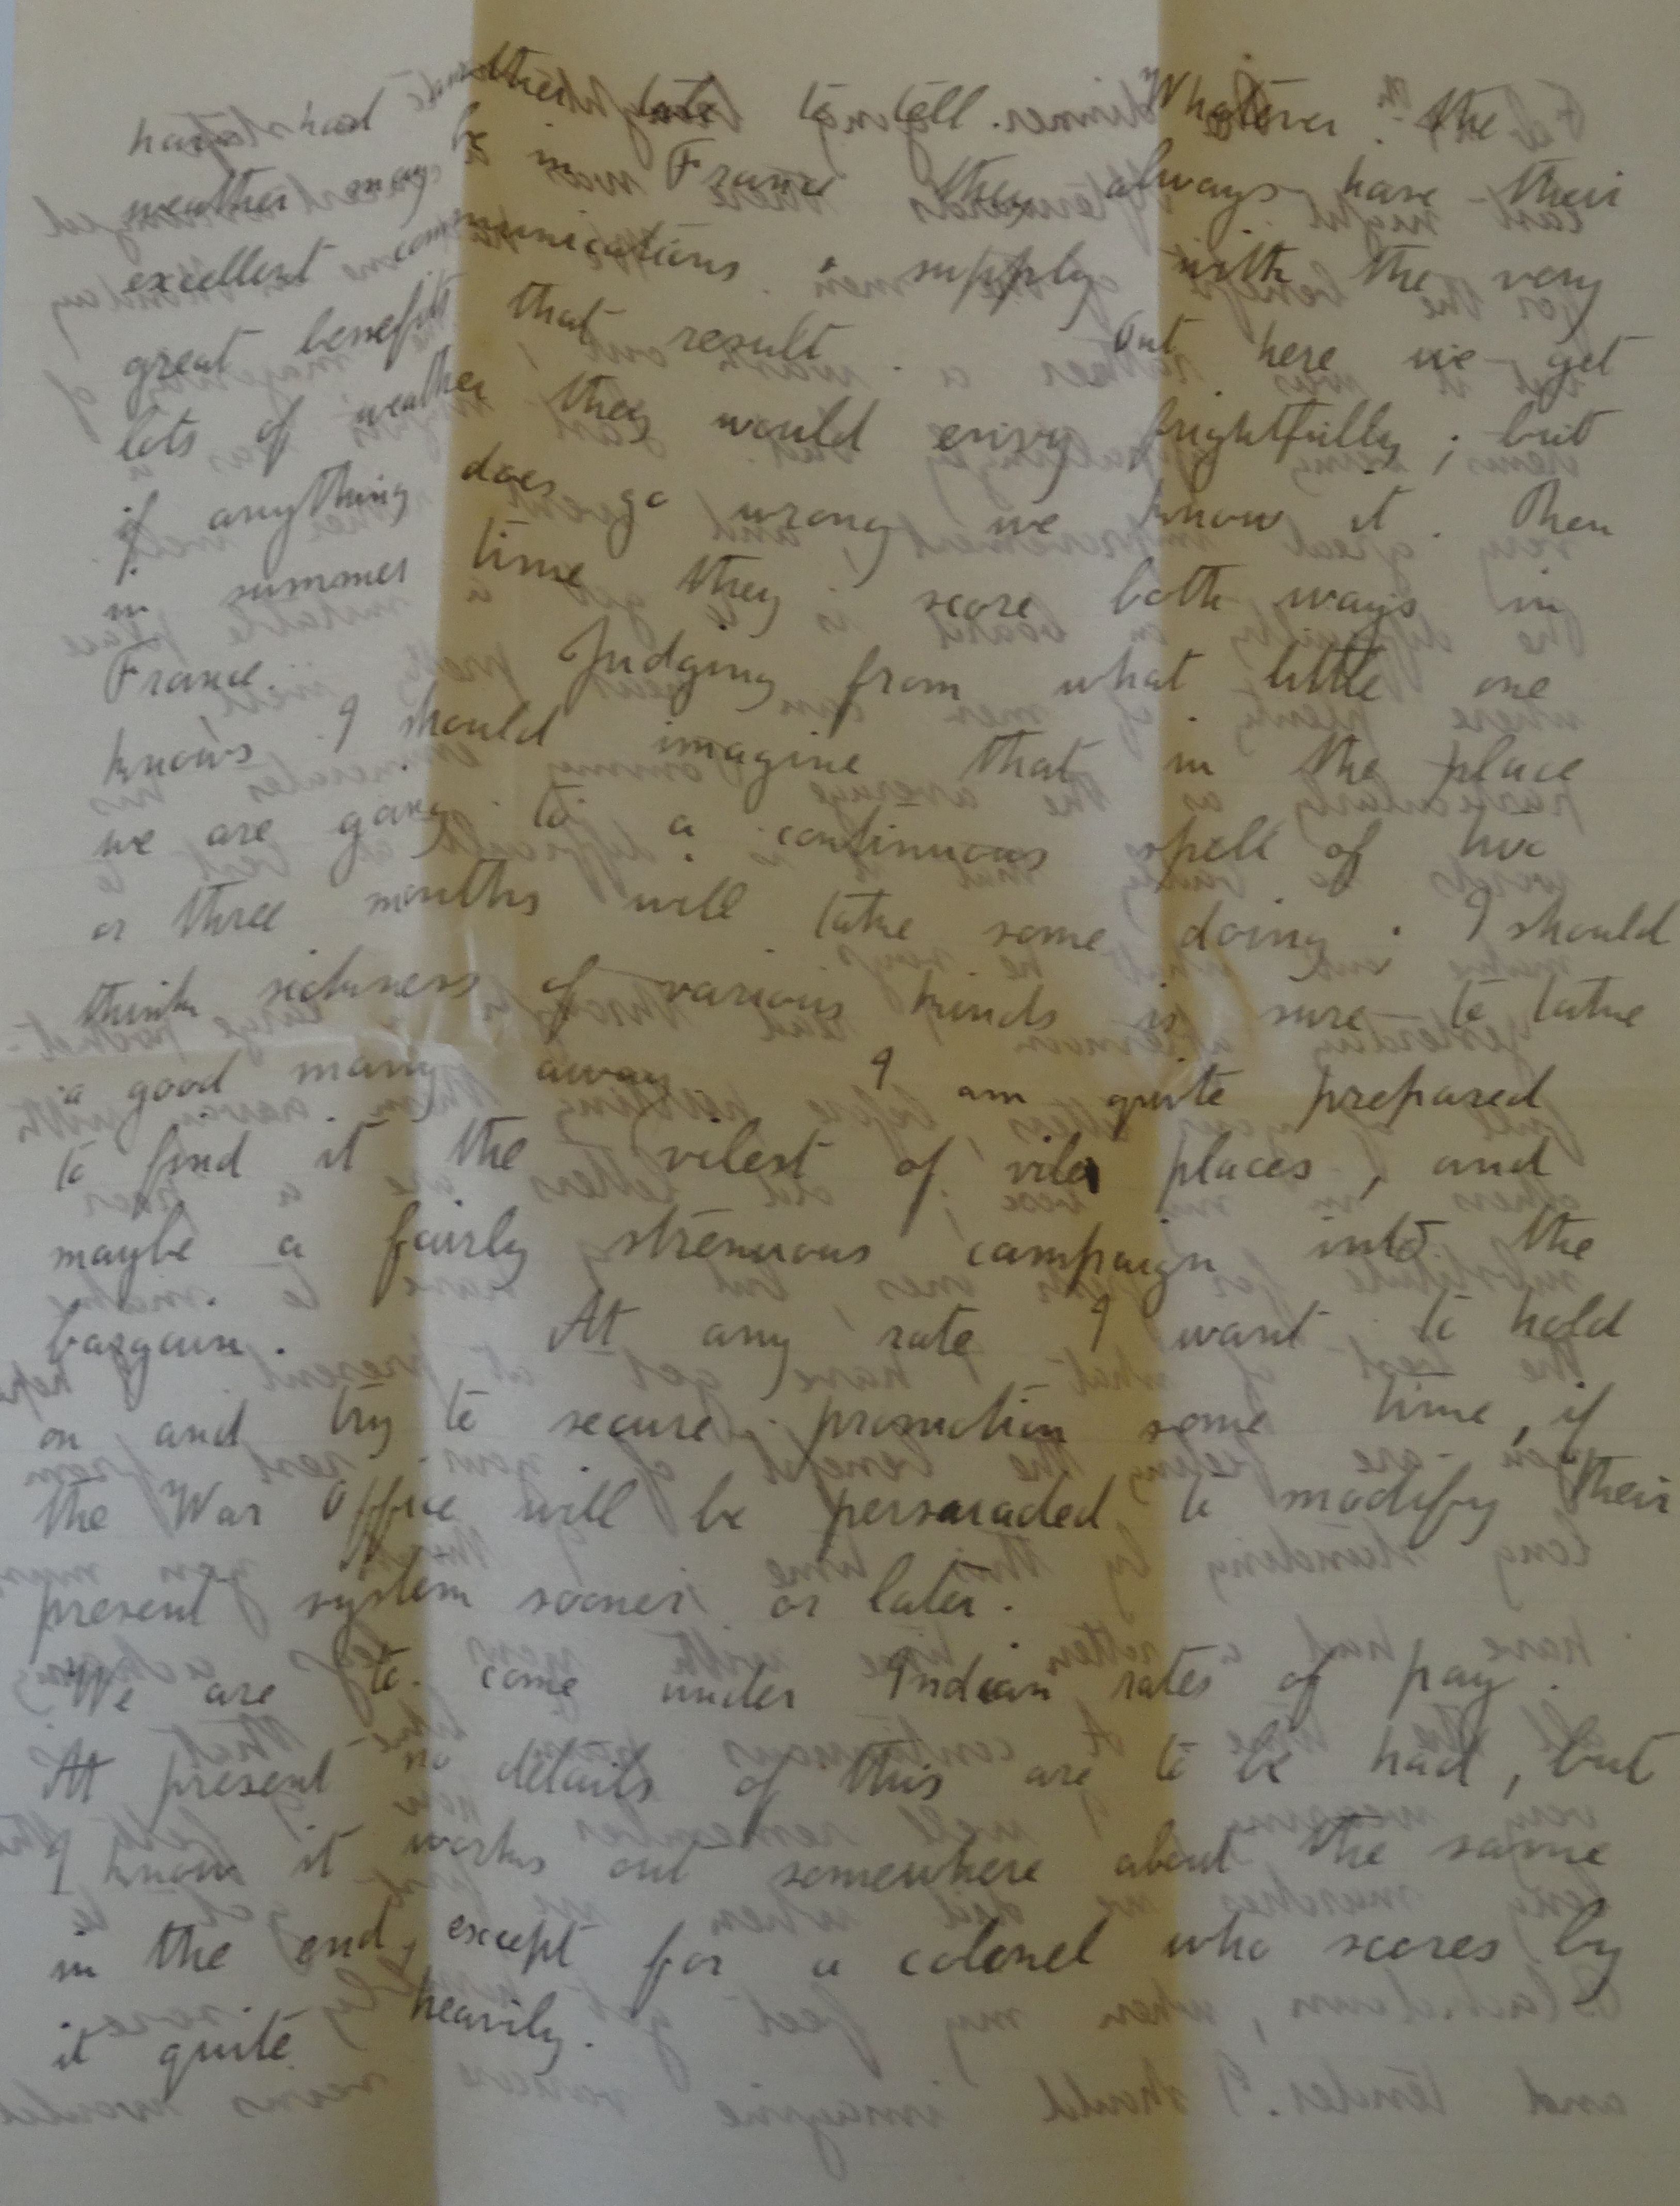 have had another tale to tell. Whatever the
weather may be in France they always have their
excellent communications & supply with the very
great benefits that result. Out here we get
lots of weather they would envy frightfully; but
if anything does go wrong we know it. Then
in summer time they score both ways in
France. Judging from what little one
knows I should imagine that in the place
we are going to a continuous spell of two
or three months will take some doing. I should
think sickness of various kinds is sure to take
a good many away. I am quite prepared
to find it the vilest of vile places, and
maybe a fairly strenuous campaign into the
bargain. At any rate I want to hold
on and try to secure promotion some time, if
the War Office will be persuaded to modify their
present system sooner or later.
We are to come under Indian rates of pay.
At present no details of this are to be had, but
I know it works out somewhere about the same
in the end, except for a colonel who scores by
it quite heavily.